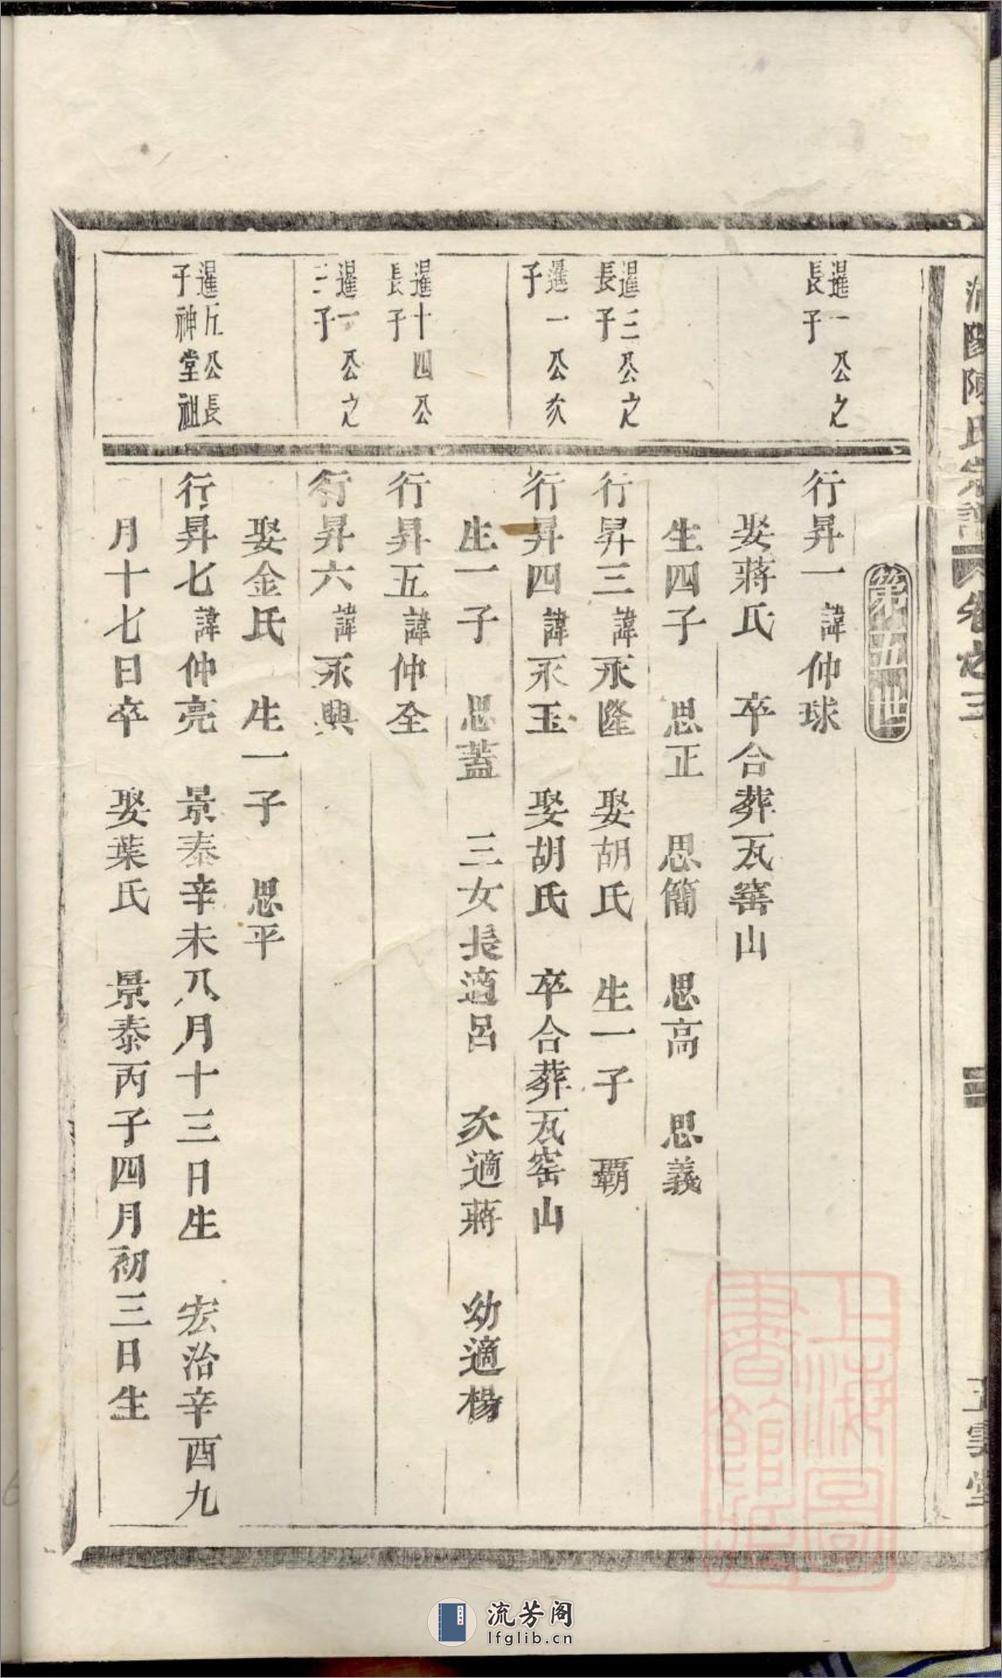 陳氏宗譜
卷之三
第五世
暹一公之
長子
行昇一諱仲球
娶蔣氏 卒合葬瓦窰山
生四子 思正 思簡 思高 思義
暹三公之
長子
行昇三諱永隆 娶胡氏 生一子 霸
暹一公次
子
行昇四諱永玉 娶胡氏 卒合葬瓦窑山
生一子 思蓋 三女長適呂 次適蔣 幼適楊
暹十四公
長子
行昇五諱仲全
暹一公之
三子
行昇六諱永興
娶金氏 生一子 思平
暹五公長
子神堂祖
行昇七諱仲亮 景泰辛未八月十三日生 宏治辛酉九
月十七日卒 娶葉氏 景泰丙子四月初三日生
上海圖
書館藏
流芳阁
lfglib.cn